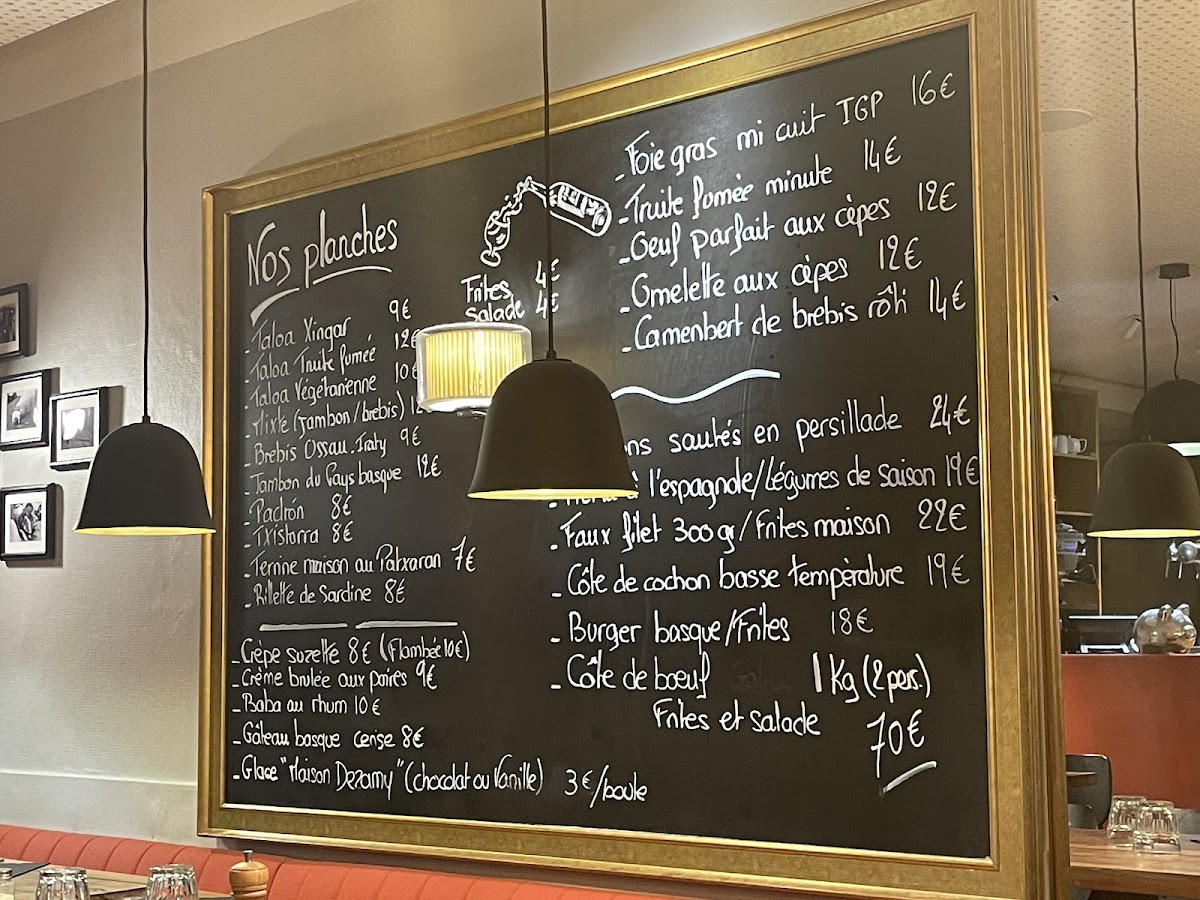 Nos planches
- Taloa Xingar 9€
- Taloa Truite fumée 12€
- Taloa Végétarienne 10€
- Mixte (jambon/brebis)
- Brebis Ossau-Iraty 9€
- Jambon du Pays basque 12€
- Padrón 8€
- Txistorra 8€
- Terrine maison au Patxaran 7€
- Rillette de Sardine 8€
- Crêpe suzette 8€ (Flambée 10€)
- Crème brulée aux poires 9€
- Baba au rhum 10€
- Gâteau basque cerise 8€
- Glace "Maison Dezamy" (chocolat ou Vanille) 3€/boule
Frites 4€
Salade 4€
- Foie gras mi cuit IGP 16€
- Truite fumée minute 14€
- Oeuf parfait aux cèpes 12€
- Omelette aux cèpes 12€
- Camenbert de brebis rôti 14€
sautés en persillade 24€
à l'espagnole/Légumes de saison 19€
- Faux filet 300gr/Frites maison 22€
- Côte de cochon basse température 19€
- Burger basque/Frites 18€
- Côte de boeuf 1Kg (2pers.)
Frites et salade 70€